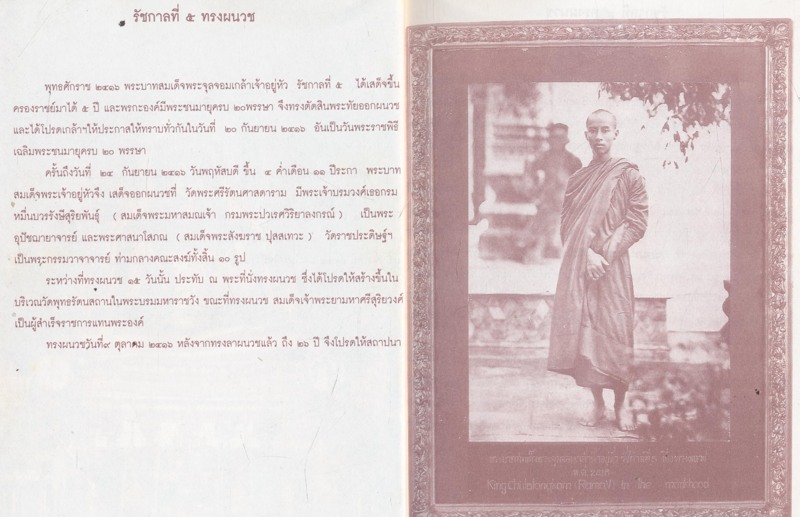 รัชกาลที่ ๕ ทรงผนวช
พุทธศักราช ๒๔๑๖ พระบาทสมเด็จพระจุลจอมเกล้าเจ้าอยู่หัว รัชกาลที่ ๕ ได้เสด็จขึ้น
ครองราชย์มาได้ ๕ ปี และพรกะองค์มีพระชนมายุครบ ๒๐พรรษา จึงทรงตัดสินพระทัยออกผนวช
และได้โปรดเกล้าฯให้ประกาศให้ทราบทั่วกันในวันที่ ๒๐ กันยายน ๒๔๑๖ อันเป็นวันพระราชพิธี
เฉลิมพระชนมายุครบ ๒๐ พรรษา
ครั้นถึงวันที่ ๒๔ กันยายน ๒๔๑๖ วันพฤหัสบดี ขึ้น ๔ ค่ำเดือน ๑๑ ปีระกา พระบาท
สมเด็จพระเจ้าอยู่หัวจึง เสด็จออกผนวชที่ วัดพระศรีรัตนศาสดาราม มีพระเจ้าบรมวงศ์เธอกรม
หมื่นบวรรังษีสุริยพันธุ์ (สมเด็จพระมหาสมณเจ้า กรมพระปวเรศวิริยาลงกรณ์) เป็นพระ
อุปัชฌายาจารย์ และพระศาสนาโสภณ (สมเด็จพระสังฆราช ปุสสเทวะ) วัดราชประดิษฐ์ฯ
เป็นพระกรรมวาจาจารย์ ท่ามกลางคณะสงฆ์ทั้งสิ้น ๑๐ รูป
ระหว่างที่ทรงผนวช ๑๕ วันนั้น ประทับ ณ พระที่นั่งทรงผนวช ซึ่งได้โปรดให้สร้างขึ้นใน
บริเวณวัดพุทธรัตนสถานในพระบรมมหาราชวัง ขณะที่ทรงผนวช สมเด็จเจ้าพระยามหาศรีสุริยวงศ์
เป็นผู้สำเร็จราชการแทนพระองค์
ทรงผนวชวันที่๙ ตุลาคม ๒๔๑๖ หลังจากทรงลาผนวชแล้ว ถึง ๒๖ ปี จึงโปรดให้สถาปนา
King Chulalongkorn (Rama V) in